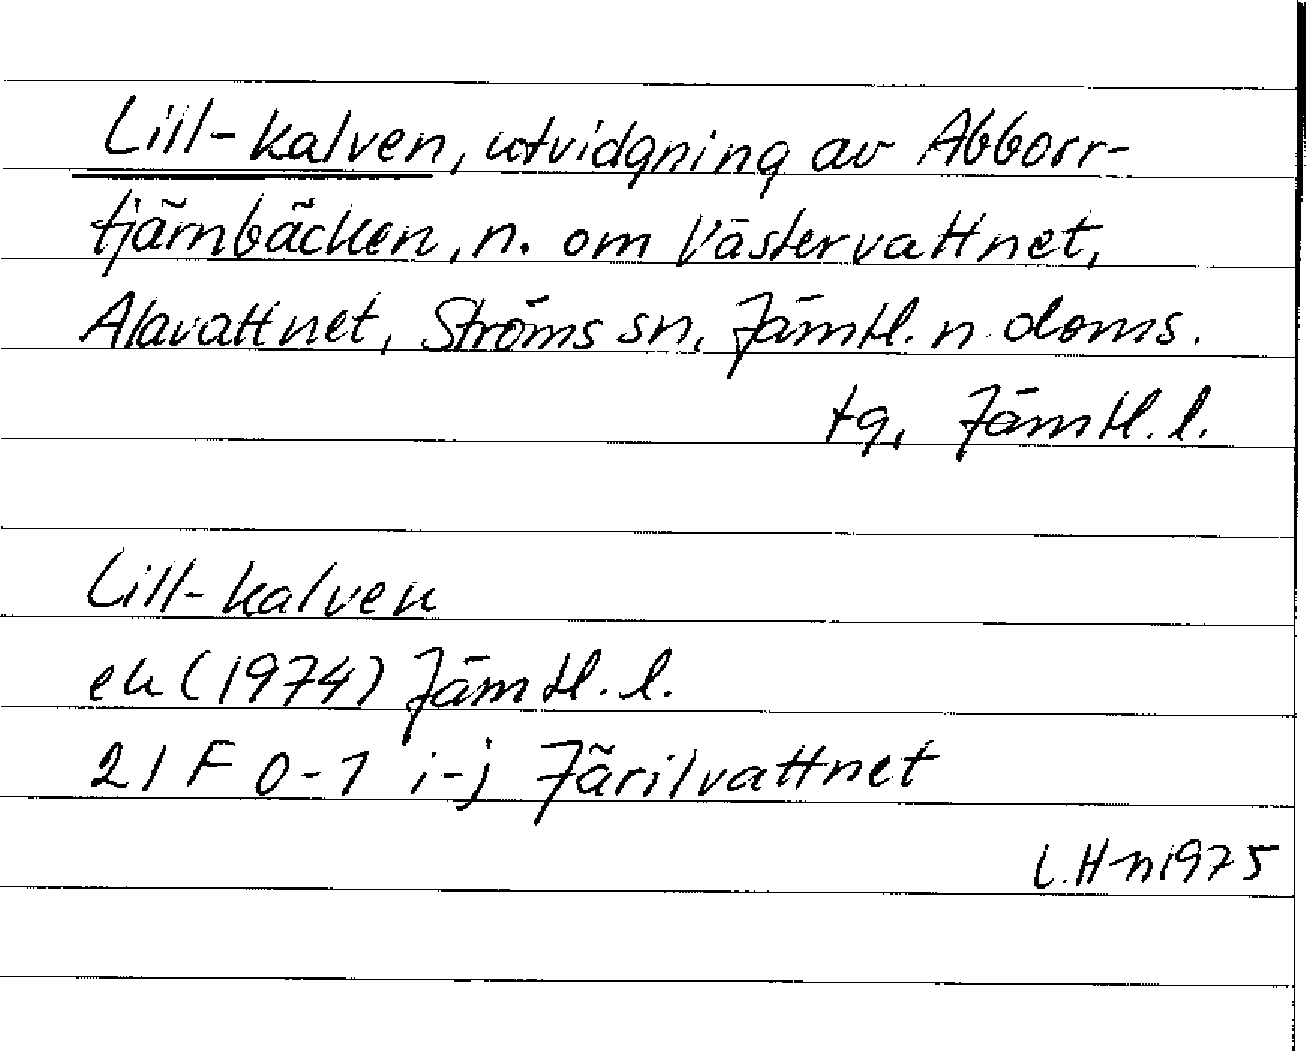 Lill-kalven, utvidgning av Abborr-
tjärnbäcken, n. om Västervattnet,
Alavattnet, Ströms sn, Jämtl. n. doms.
tg, Jämtl. l.
Lill-kalven
ek (1974) Jämtl. l.
21 F 0-1 i-j Järilvattnet
L. H-n 1975